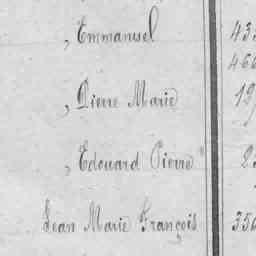 , Emmanuel 433
466
, Pierre Marie
, Edouard Pierre
Jean Marie François 356